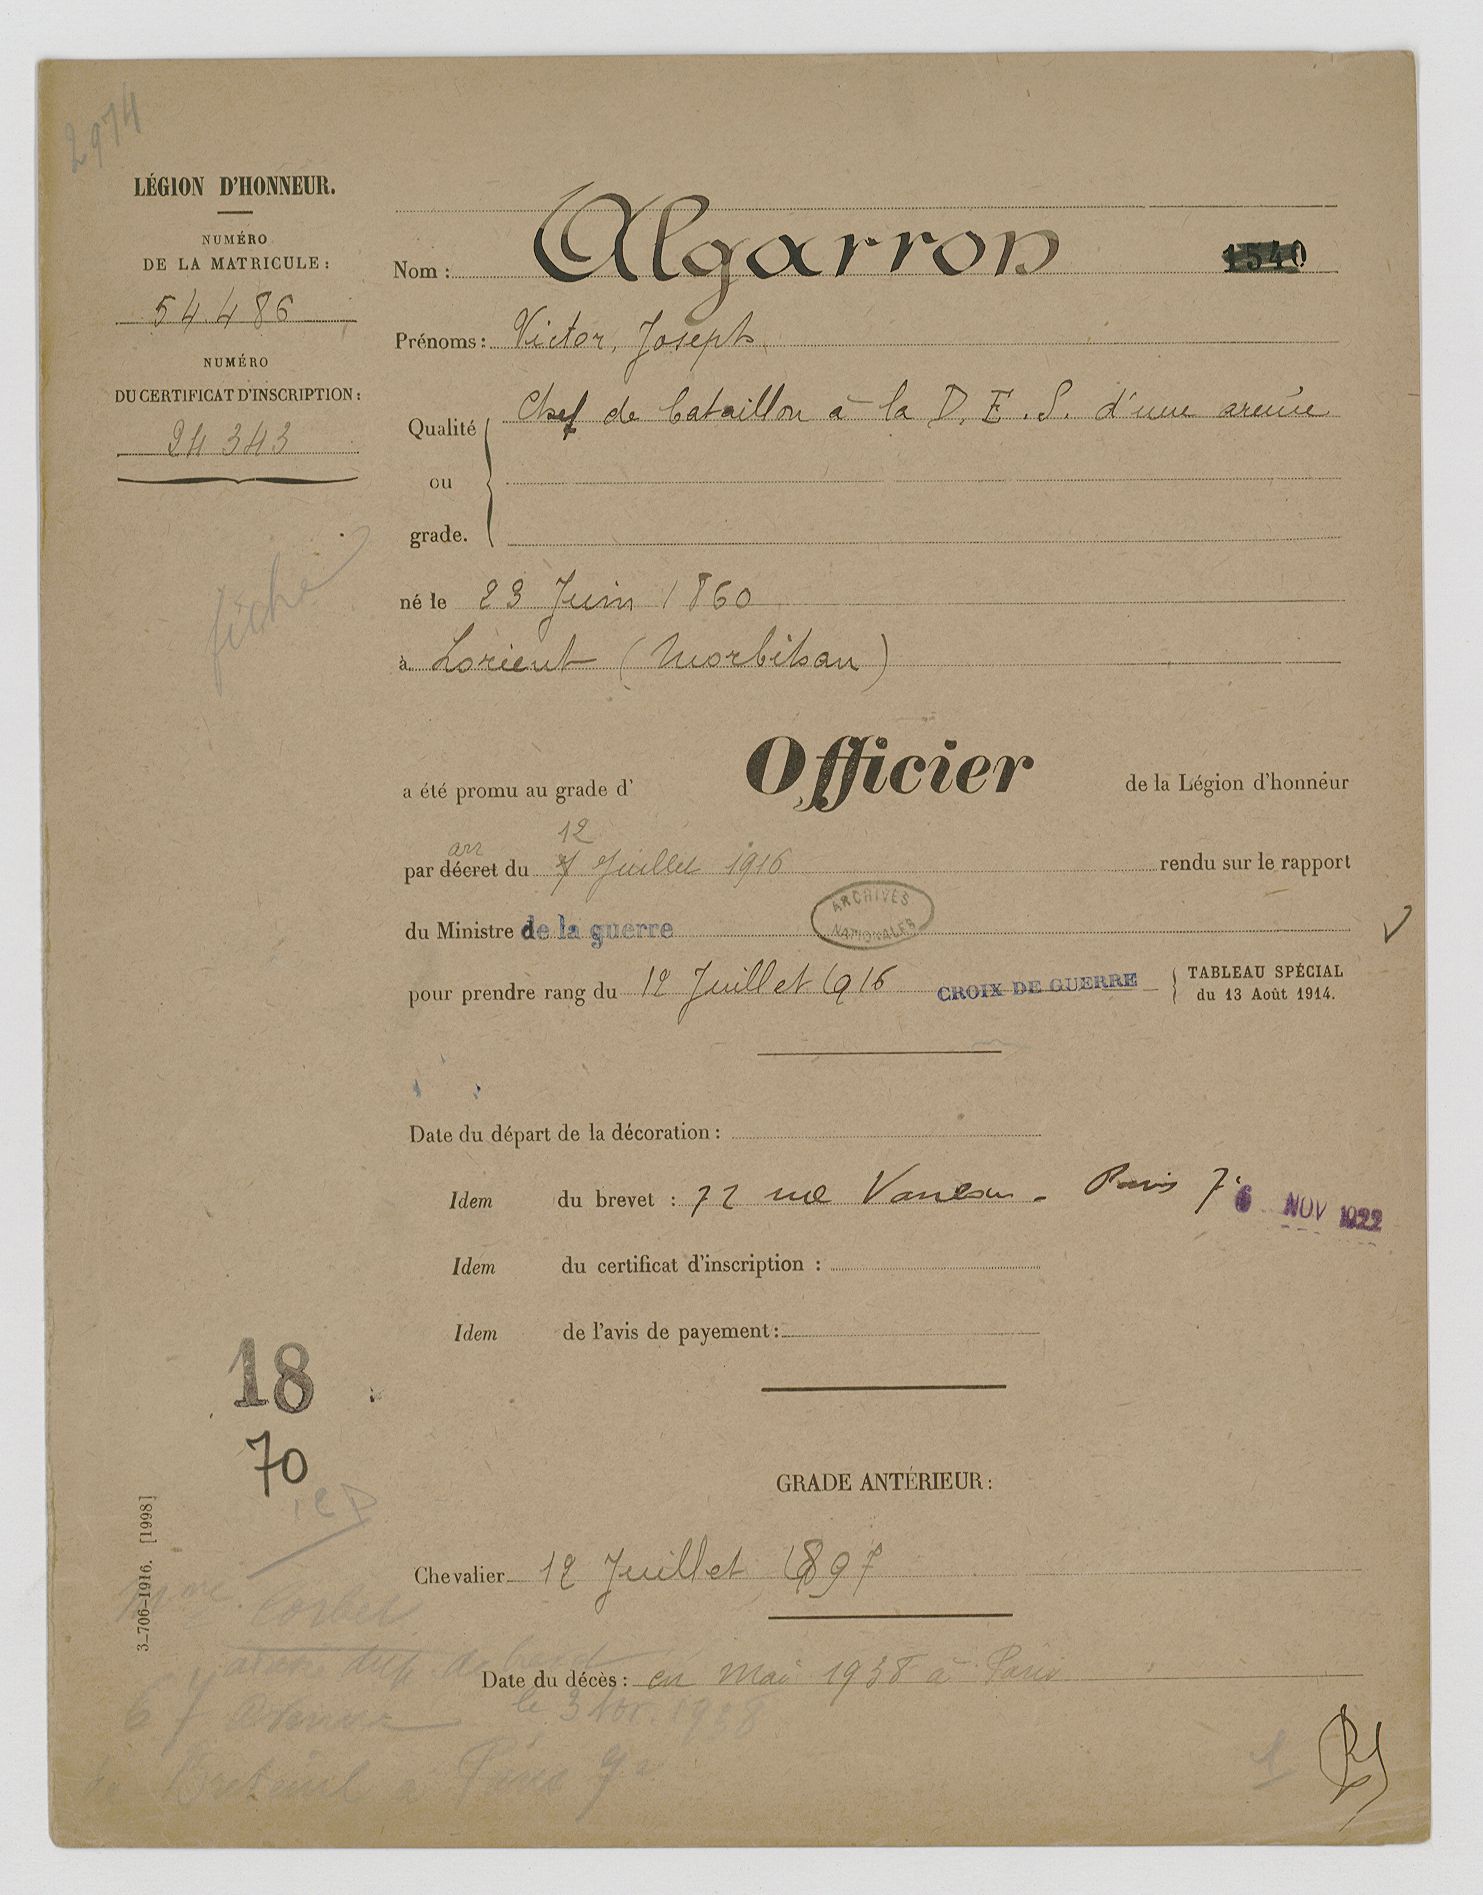 2974
LÉGION D'HONNEUR.
NUMÉRO
DE LA MATRICULE :
54.486
NUMÉRO
DU CERTIFICAT D'INSCRIPTION :
24343
fiche
Nom : Algarron 1540
Prénoms : Victor, Joseph
Qualité ou grade. Chef de bataillon à la D.E.S. d'une armée
né le 23 Juin 1860
à Lorient (Morbihan)
a été promu au grade d' Officier de la Légion d'honneur
12
arr
par décret du 7 Juillet 1916 rendu sur le rapport
ARCHIVES NATIONALES
du Ministre de la guerre
pour prendre rang du 12 Juillet 1916 CROIX DE GUERRE TABLEAU SPÉCIAL
du 13 Août 1914.
Date du départ de la décoration :
Idem du brevet : 72 rue Vaneau - Paris 7e
6 NOV 1922
Idem du certificat d'inscription :
Idem de l'avis de payement :
18
70
GRADE ANTÉRIEUR :
3-706-1916. [1998]
Chevalier 12 Juillet 1897
Mme Corbel
Date du décès : en mai 1938 à Paris
le 3 Nov 1938
67 Avenue
de Breteuil à Paris 7e